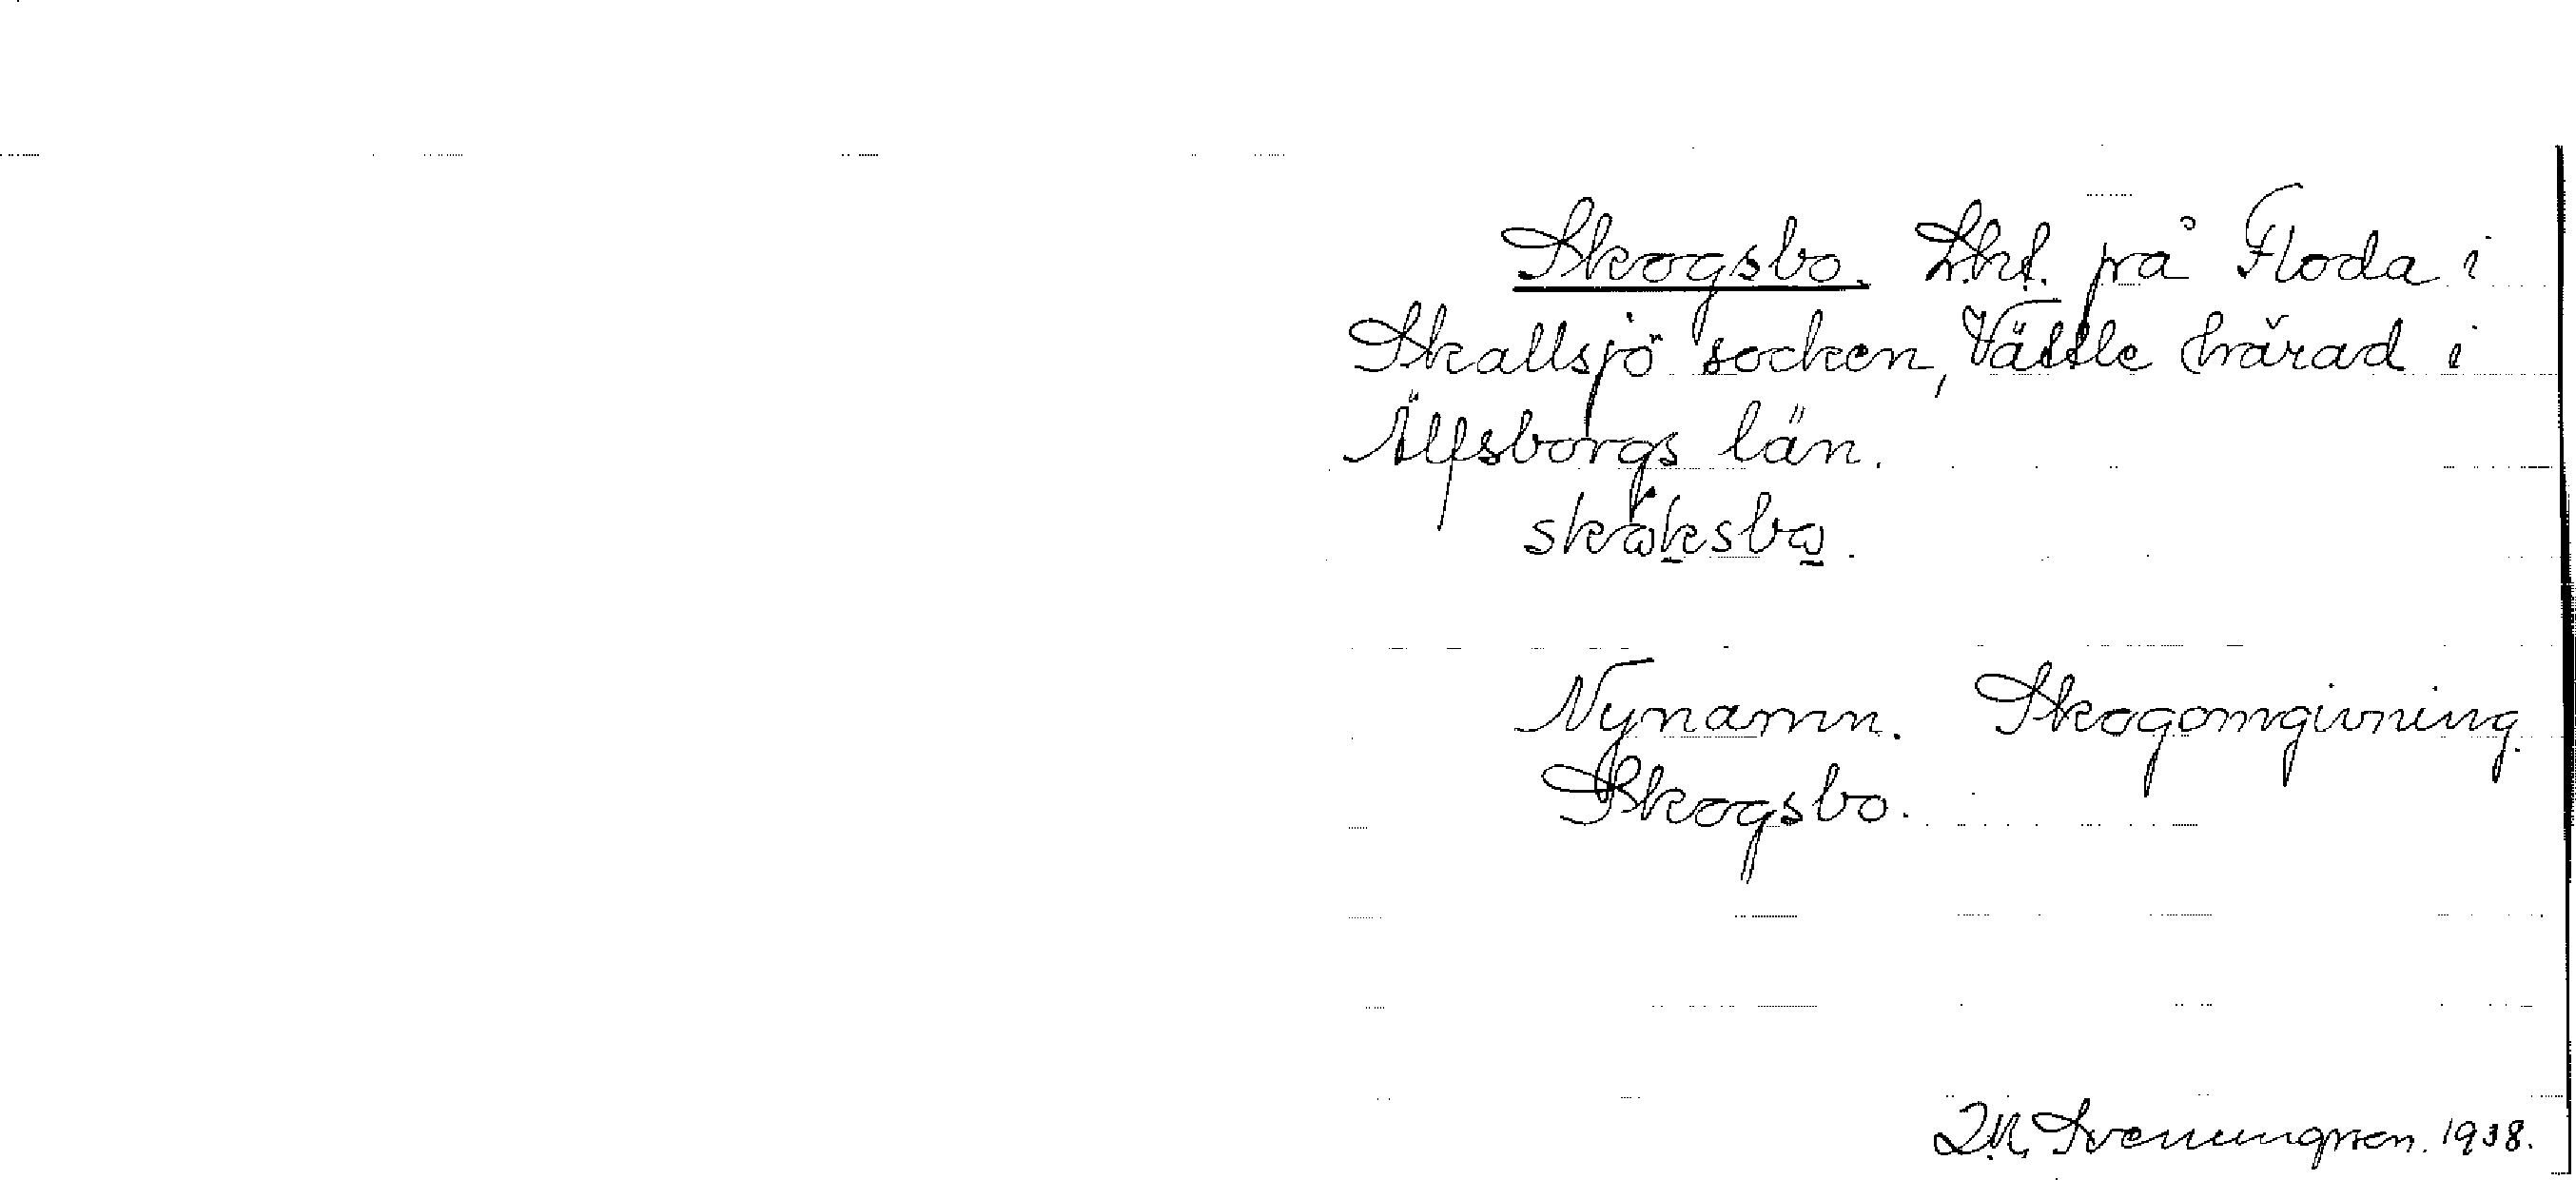 Skogsbo. Lht. på Floda i
Skallsjö socken, Vättle härad i
Älfsborgs län.
Nynamn. Skogomgivning.
Skogsbo.
Svenungsson. 1938.